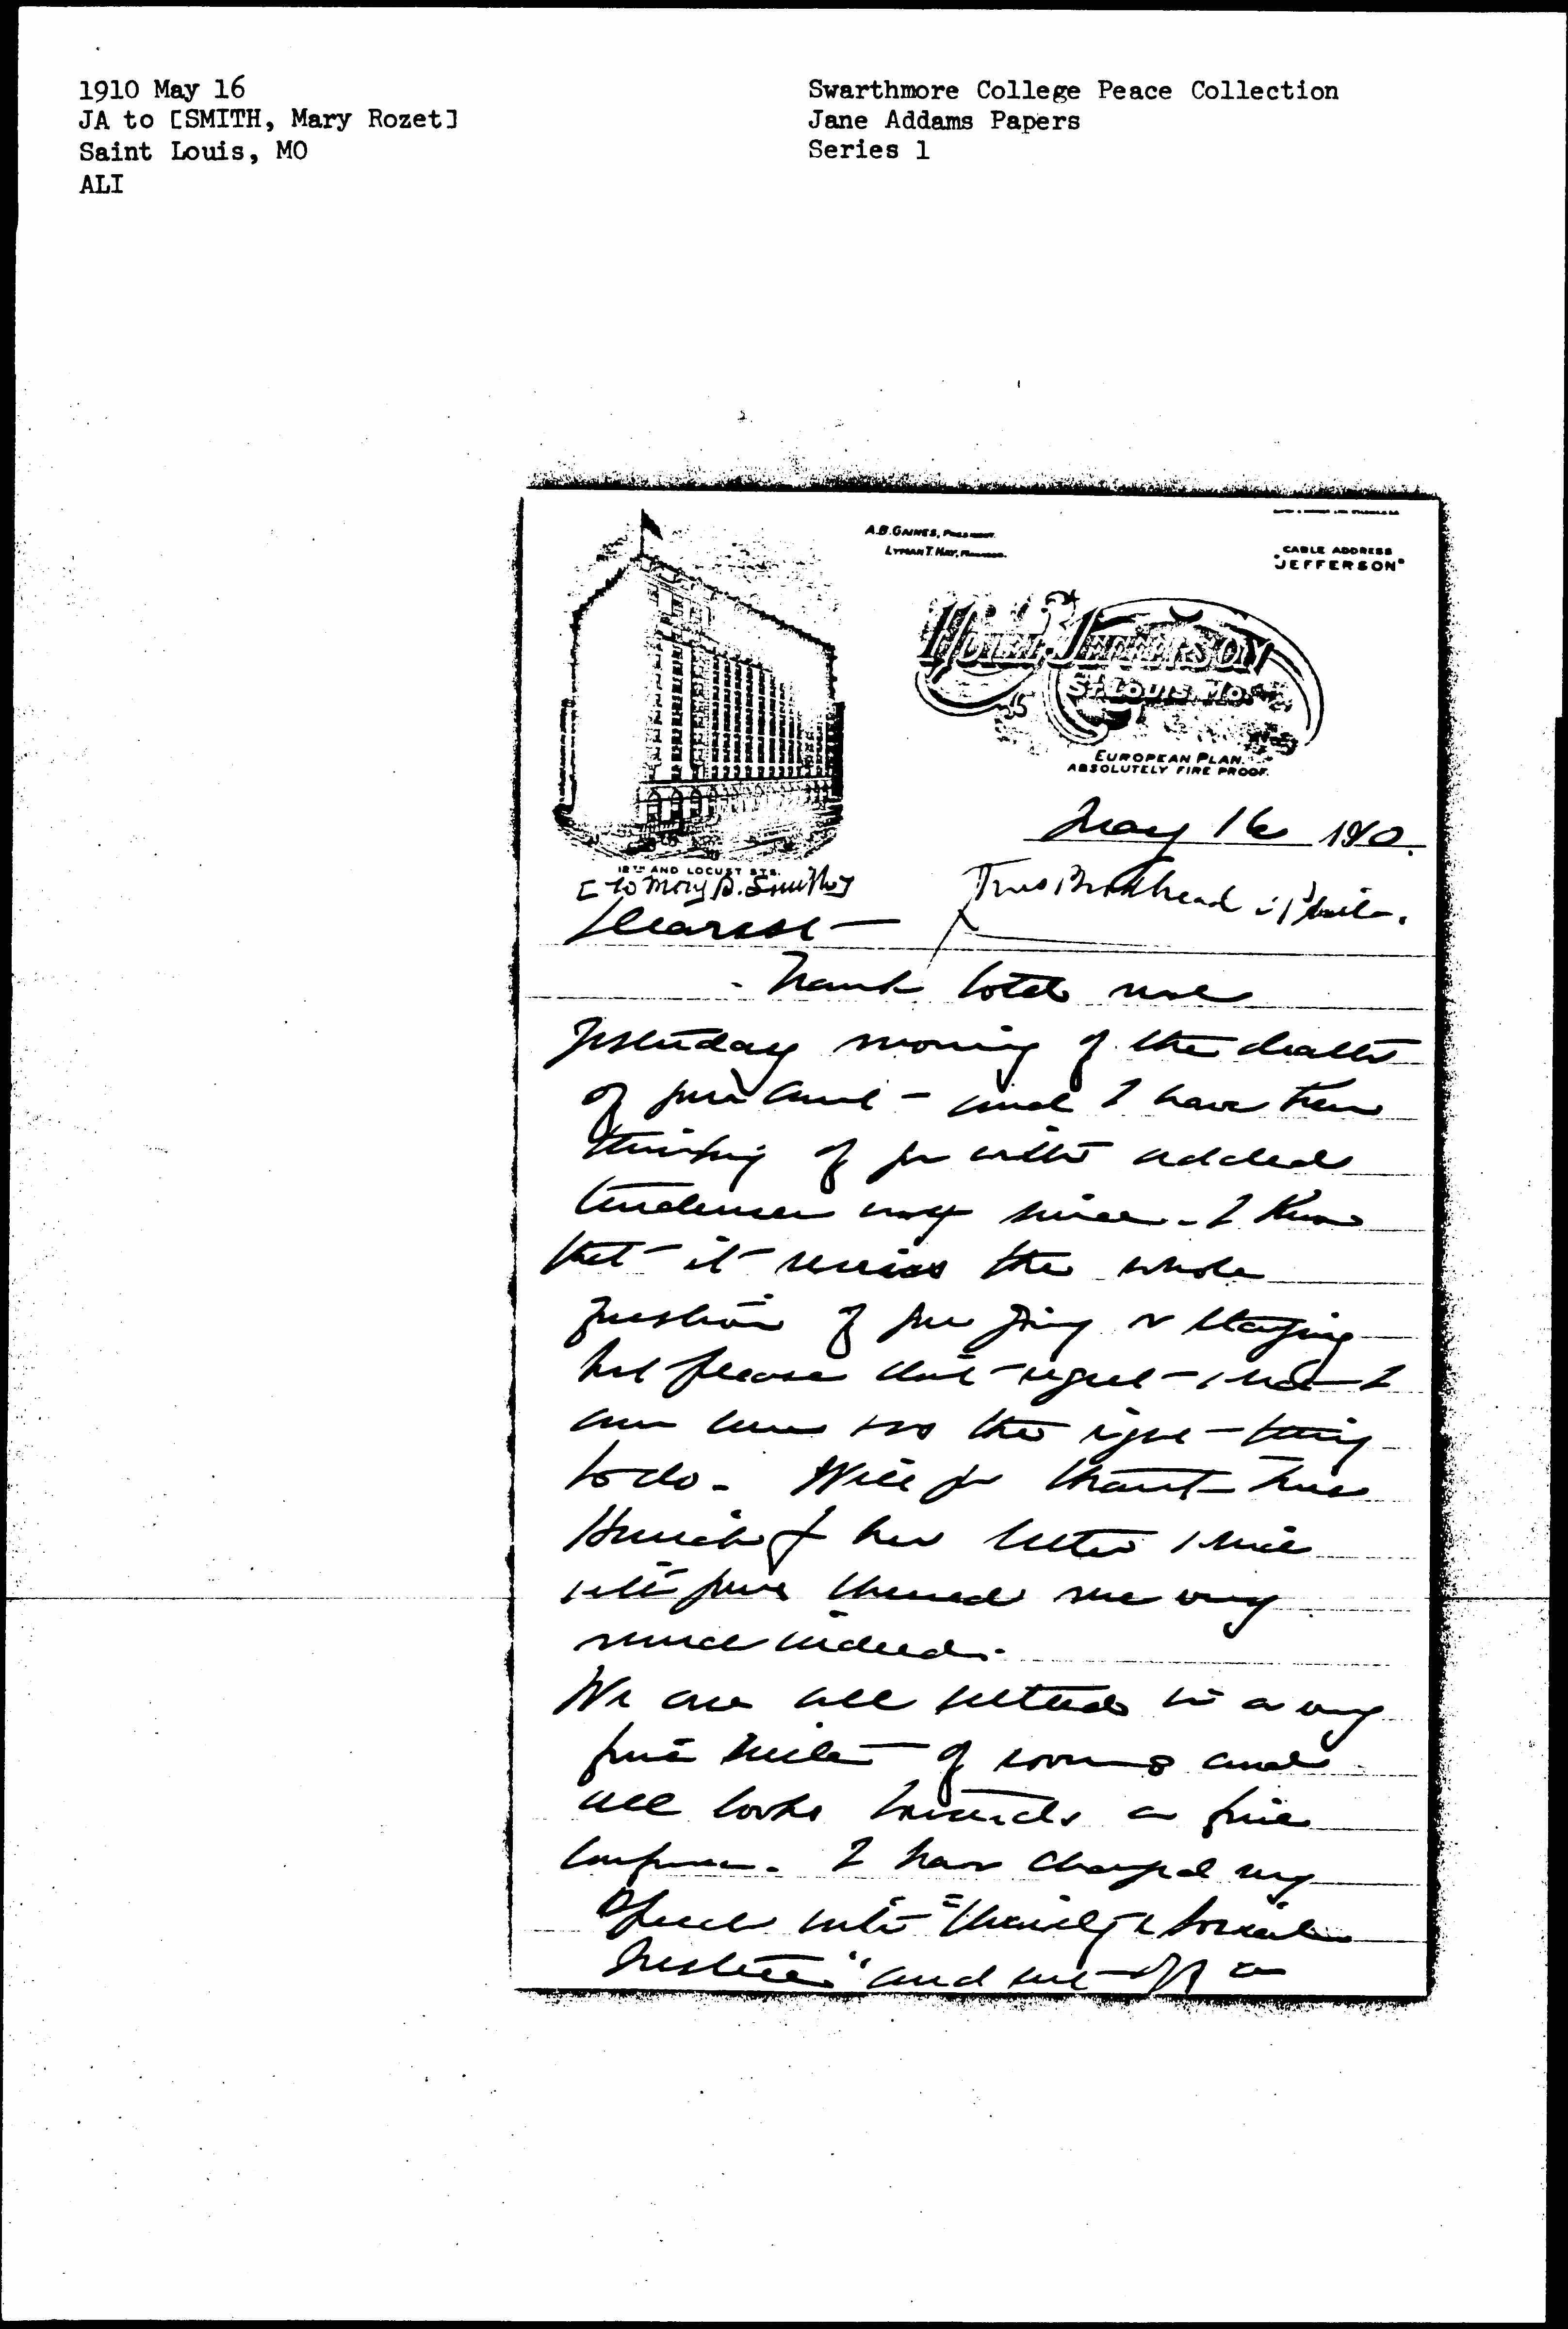 1910 May 16
JA to [SMITH, Mary Rozet]
Saint Louis, MO
ALI
Swarthmore College Peace Collection
Jane Addams Papers
Series 1
A.B. GAINES, PRESIDENT.
LYMAN T. HAY,
CABLE ADDRESS
"JEFFERSON"
HOTEL JEFFERSON
ST. LOUIS, MO.
EUROPEAN PLAN.
ABSOLUTELY FIRE PROOF.
12TH AND LOCUST STS.
May 16 1910.
[to Mary R. Smith]
Dearest —
told me
yesterday morning of the death
of your Aunt — and I have been
thinking of you with added
tenderness ever since. I know
that it revives the whole
question of your going or staying
but please don't regret — what I
am sure was the right thing
to do. Will you thank Miss
for her letter which
with yours cheered me very
much indeed.
We are all settled in a very
fine suite of rooms and
all looks towards a fine
conference. I have changed my
speech into "Charity & Social
Justice" and cut off a